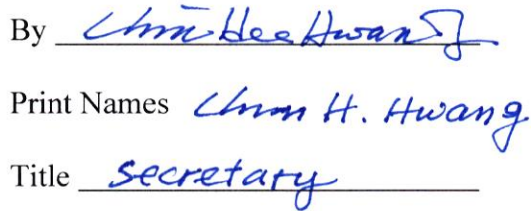 By Chun Hee Hwang
Print Names Chun H. Hwang
Title secretary